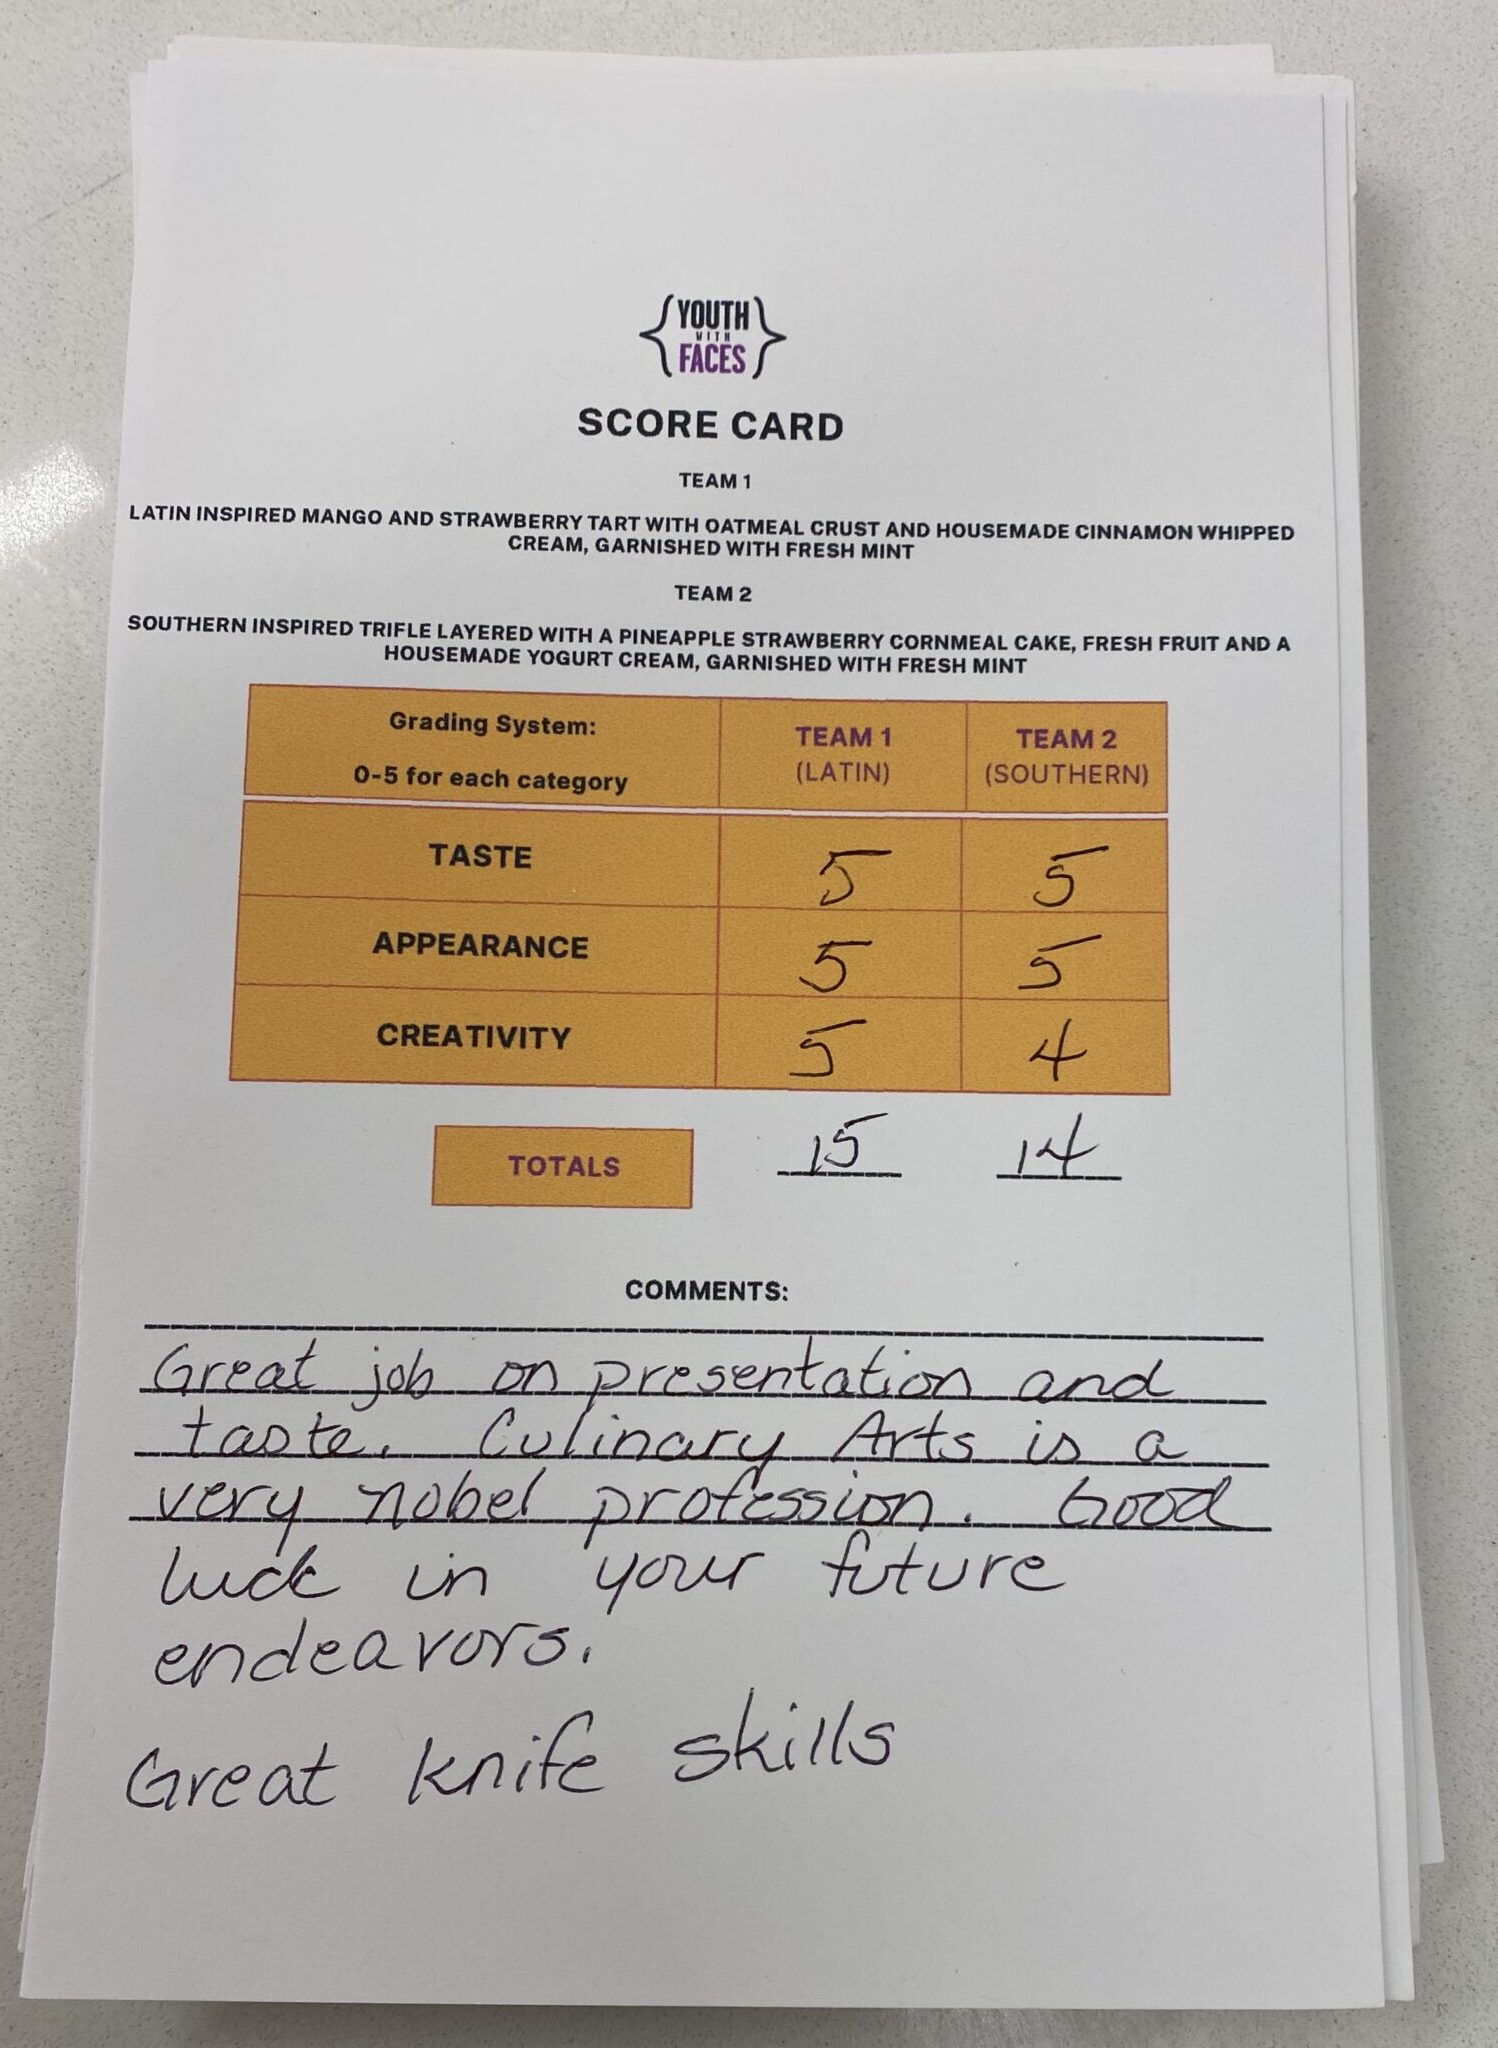 YOUTH
WITH
FACES
SCORE CARD
TEAM 1
LATIN INSPIRED MANGO AND STRAWBERRY TART WITH OATMEAL CRUST AND HOUSEMADE CINNAMON WHIPPED
CREAM, GARNISHED WITH FRESH MINT
TEAM 2
SOUTHERN INSPIRED TRIFLE LAYERED WITH A PINEAPPLE STRAWBERRY CORNMEAL CAKE, FRESH FRUIT AND A
HOUSEMADE YOGURT CREAM, GARNISHED WITH FRESH MINT
Grading System:
0-5 for each category
TEAM 1
(LATIN)
TEAM 2
(SOUTHERN)
TASTE 5 5
APPEARANCE 5 5
CREATIVITY 5 4
TOTALS 15 14
COMMENTS:
Great job on presentation and
taste. Culinary Arts is a
very nobel profession. Good
luck in your future
endeavors.
Great knife skills